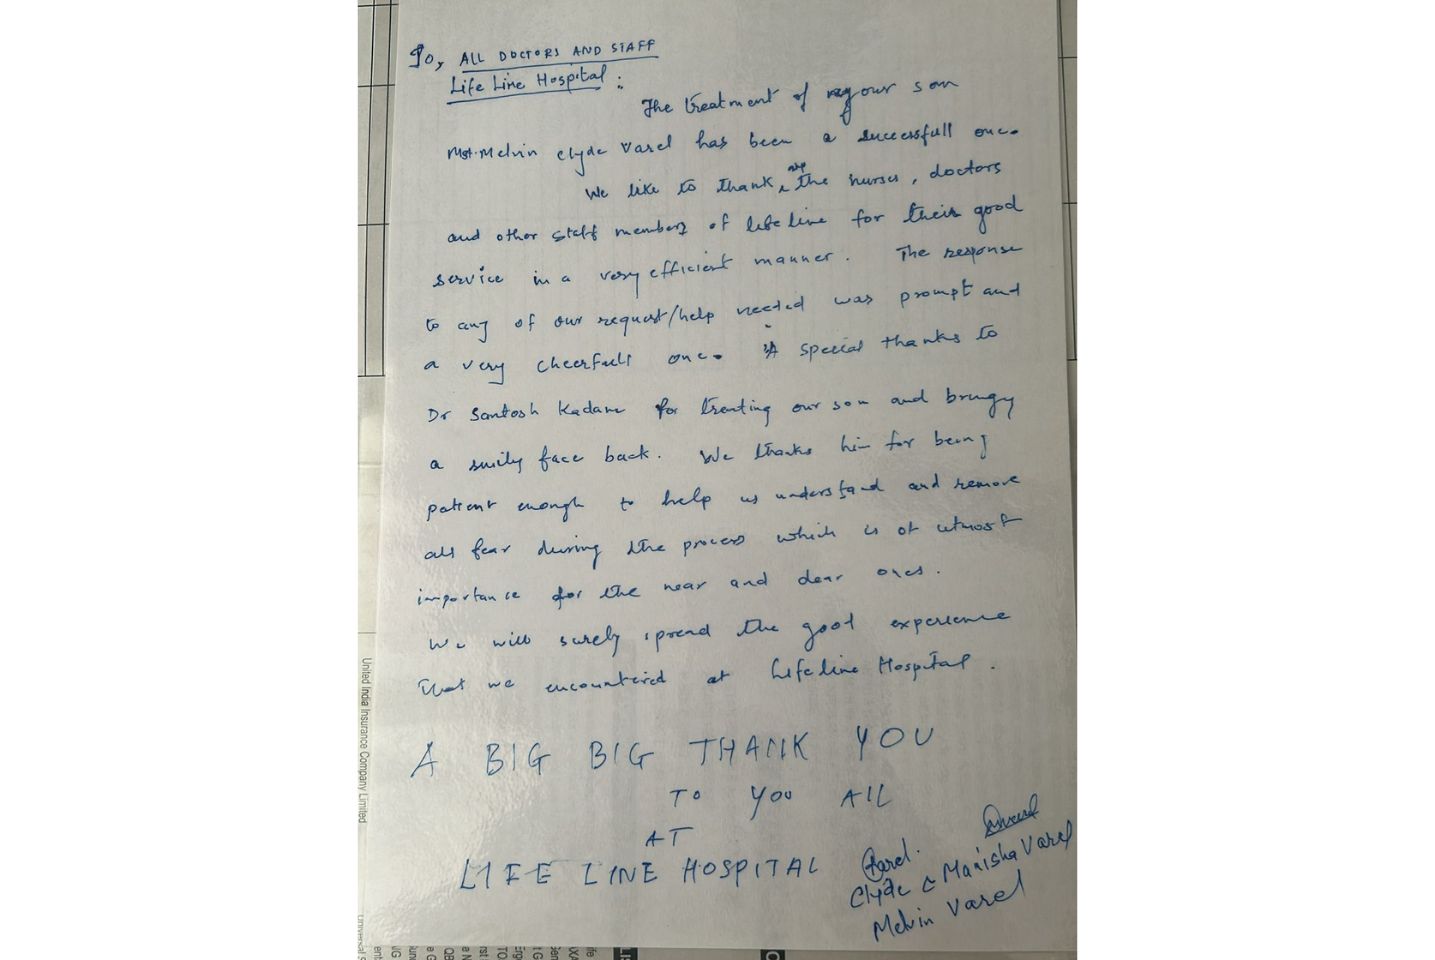 To, ALL DOCTORS AND STAFF
Life Line Hospital :
The treatment of our son
Mst. Melvin Clyde Varel has been a successfull one.
We like to thank all the nurses, doctors
and other staff members of life line for their good
service in a very efficient manner. The response
to any of our request/help needed was prompt and
a very cheerfull one. A special thanks to
Dr Santosh Kadam for treating our son and bringy
a smily face back. We thanks him for being
patient enough to help us understand and remove
all fear during the process which is of utmost
importance for the near and dear ones.
We will surely spread the good experience
that we encountered at Lifeline Hospital.
A BIG BIG THANK YOU
TO YOU ALL
AT
LIFE LINE HOSPITAL
Varel.
Clyde & Manisha Varel
Melvin Varel
United India Insurance Company Limited